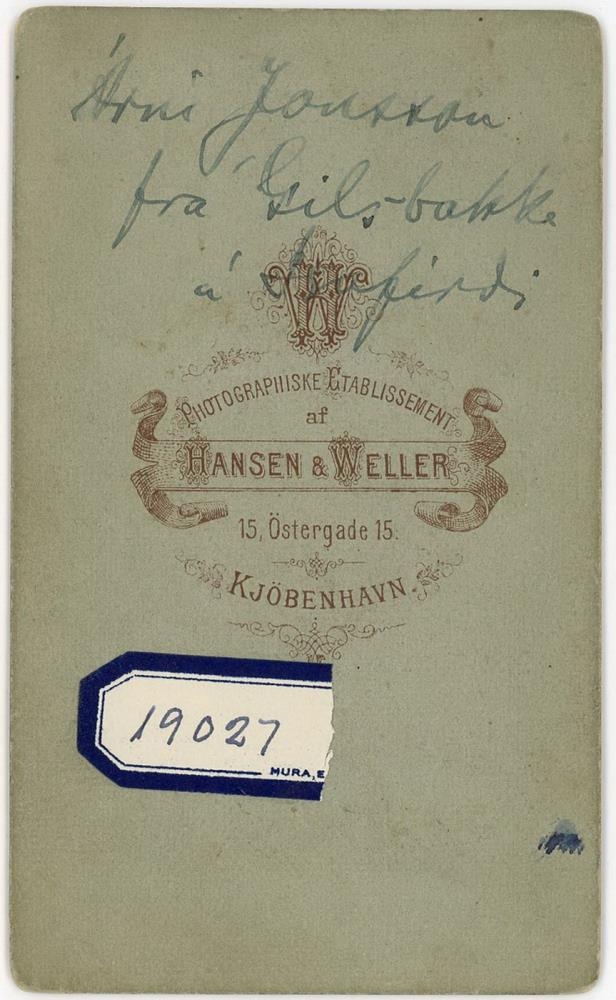 Árni Jonsson
frá Gilsbakka
á
HW
PHOTOGRAPHISKE ETABLISSEMENT
af
HANSEN & WELLER
15, Östergade 15.
KJÖBENHAVN.
19027
MURA, E